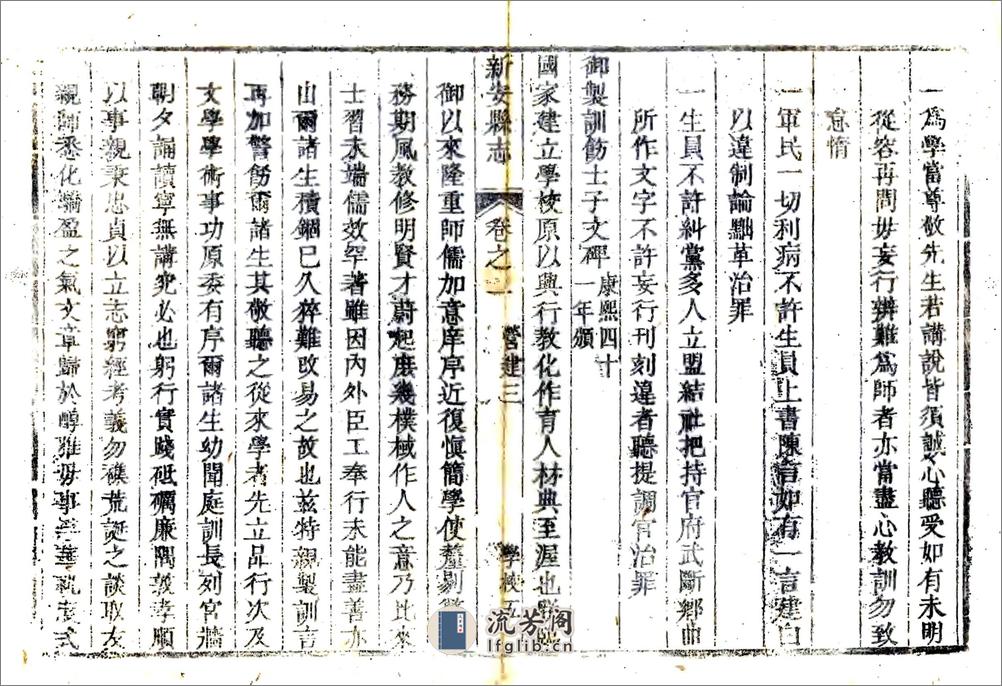 一爲學當尊敬先生若講說皆須誠心聽受如有未明
從容再問毋妄行辨難爲師者亦當盡心教訓勿致
怠惰
一軍民一切利病不許生員上書陳言如有一言建白
以違制論黜革治罪
一生員不許糾黨多人立盟結社把持官府武斷鄉曲
所作文字不許妄行刊刻違者聽提調官治罪
御製訓飭士子文碑 康熙四十一年頒
國家建立學校原以興行教化作育人材典至渥也朕臨
新安縣志 卷之一 營建三 學校五
御以來隆重師儒加意庠序近復愼簡學使釐剔弊
務期風教修明賢才蔚起庶幾樸棫作人之意乃比來
士習未端儒效罕著雖因內外臣工奉行未能盡善亦
由爾諸生積錮已久猝難改易之故也茲特親製訓言
再加警飭爾諸生其敬聽之從來學者先立品行次及
文學學術事功原委有序爾諸生幼聞庭訓長列宮牆
朝夕誦讀寧無講究必也躬行實踐砥礪廉隅敦孝順
以事親秉忠貞以立志窮經考義勿襍荒誕之談取友
親師悉化驕盈之氣文章歸於醇雅毋事浮華軌度式
流芳阁
lfglib.cn